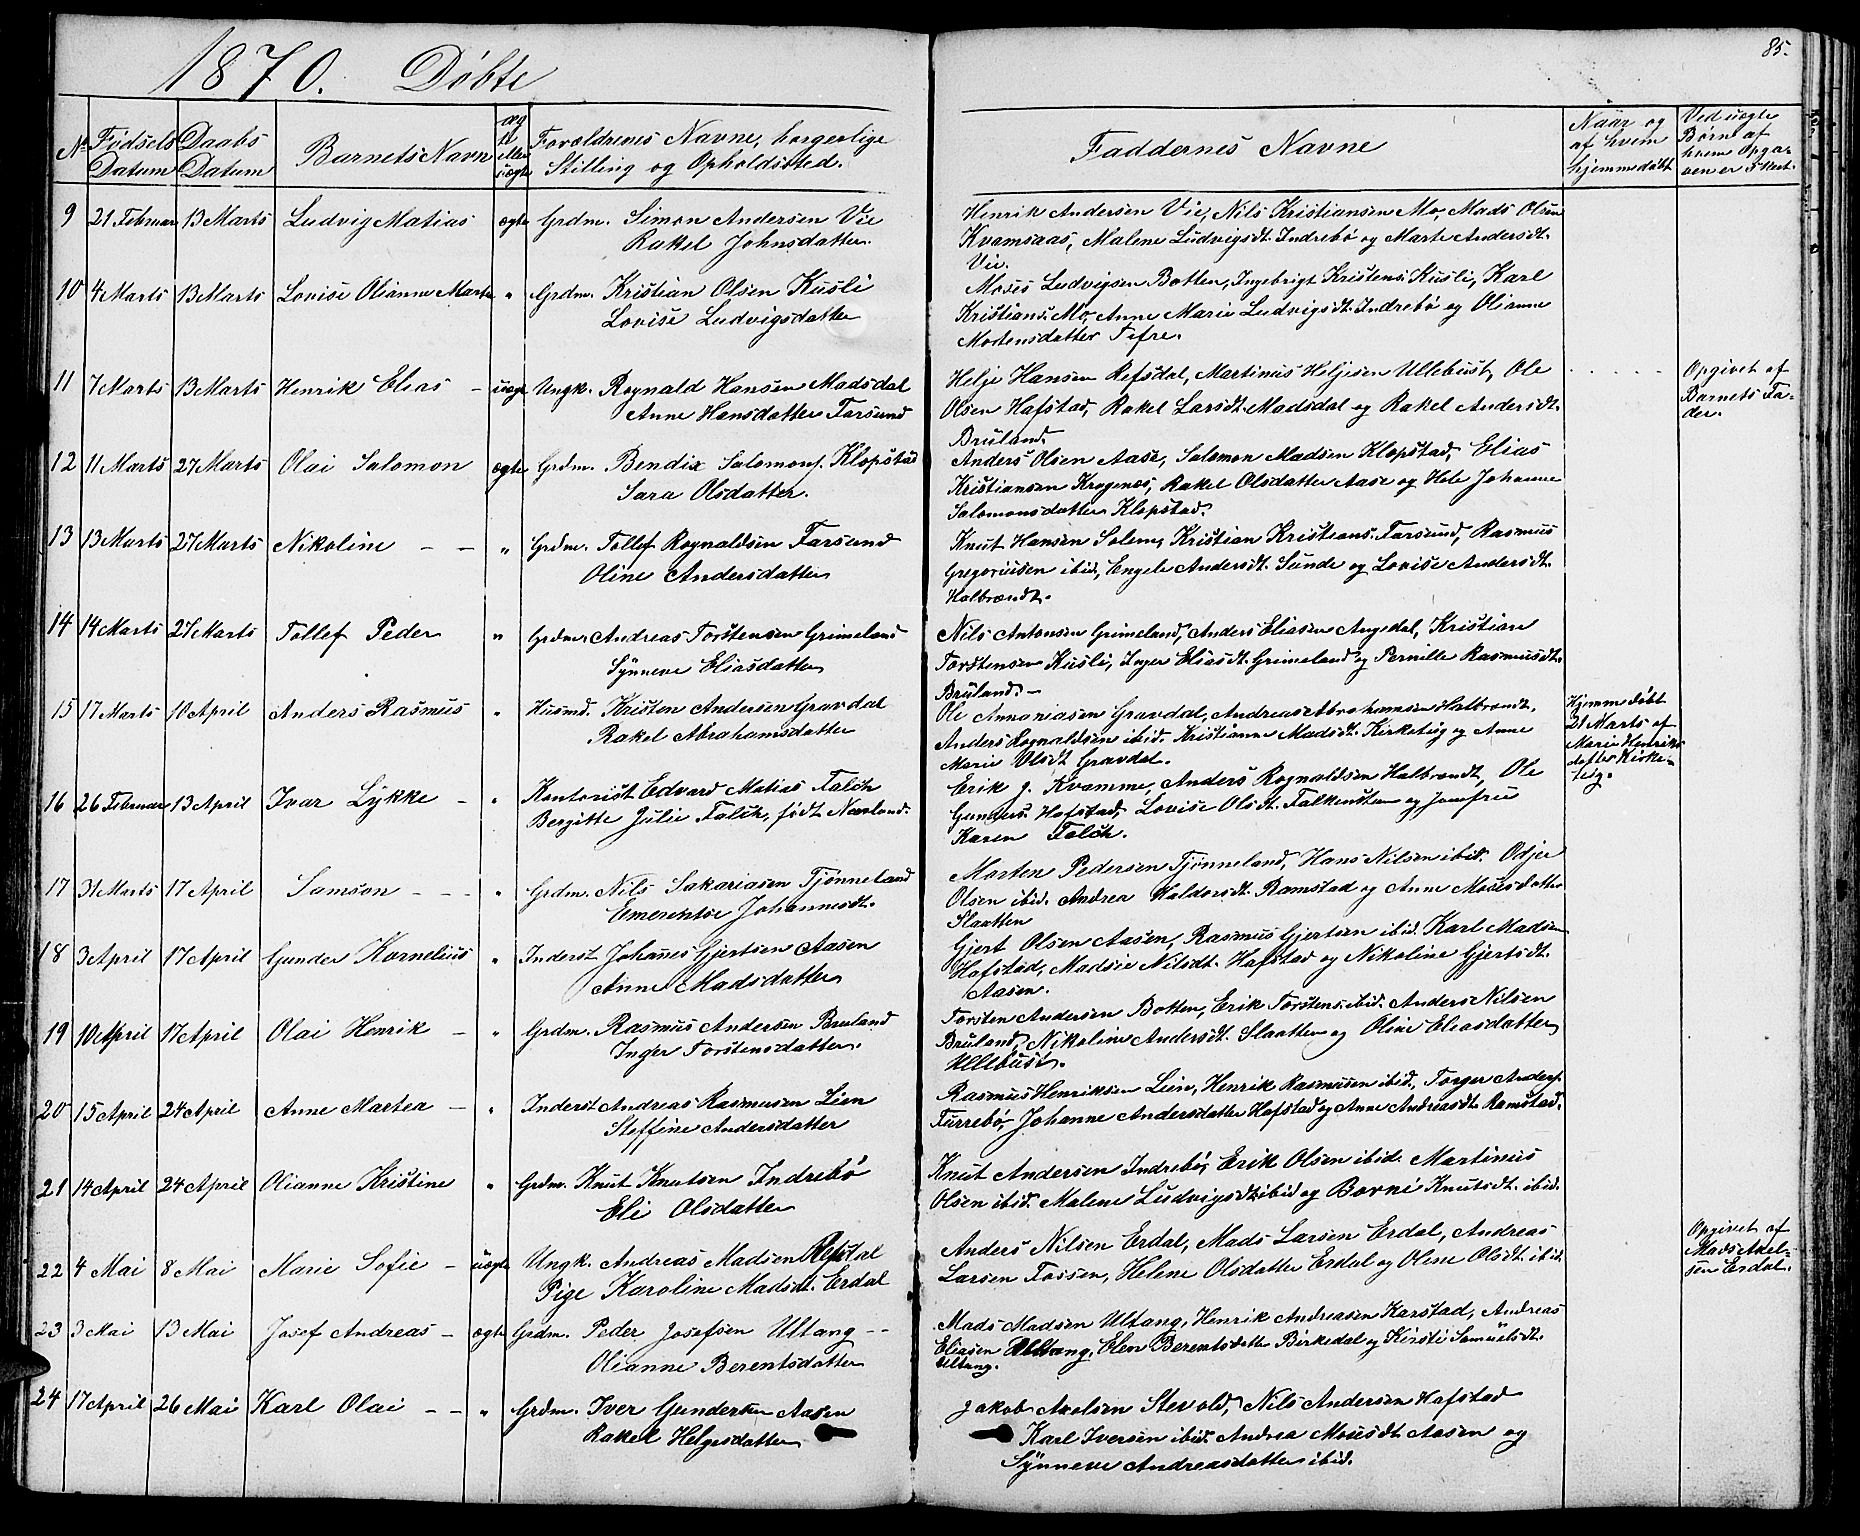 85.
1870. Døbte
Nº Fødsels Datum Daabs Datum Barnets Navn ægte eller uægte Forældrenes Navne, borgerlige Stilling og Opholdssted. Faddernes Navne Naar og af hvem hjemmedøbt Ved uægte Børn af hvem Opgaven er skeet.
9 21 Februar 13 Marts Ludvig Matias ægte Grdm. Simon Andersen Vie
Rakel Johnsdatter.
Henrik Andersen Vie, Nils Kristiansen Mo, Mads Olsen
Kvamsaas, Malene Ludvigsdt. Indrebø og Marte Andersdt.
Vie.
10 4 Marts 13 Marts Lovise Olianne Marta " Grdm. Kristian Olsen Kusli
Lovise Ludvigsdatter
Moses Ludvigsen Botten, Ingebrigt Kristens. Kusli, Karl
Kristians. Mo, Anne Marie Ludvigsdt. Indrebø og Olianne
Mortensdatter Tefre.
11 7 Marts 13 Marts Henrik Elias – uægte Ungk. Rognald Hansen Madsdal
Anne Hansdatter Farsund
Helje Hansen Refsdal, Martinus Heljesen Ullebust, Ole
Olsen Hafstad, Rakel Larsdt. Madsdal og Rakel Andersdt.
Bruland.
Opgivet af
Barnets Fa-
der.
12 11 Marts 27 Marts Olai Salomon ægte Grdm. Bendix Salomons. Klopstad
Sara Olsdatter.
Anders Olsen Aase, Salomon Madsen Klopstad, Elias
Kristiansen Krogenæs, Rakel Olsdatter Aase og Johanne
Salomonsdatter Klopstad.
13 13 Marts 27 Marts Nikoline – – " Grdm. Tollef Rognaldsen Farsund
Oline Andersdatter
Knut Hansen Solem, Kristian Kristians. Farsund, Rasmus
Gregoriusen ibid, Engele Andersdt. Sunde og Lovise Andersdt.
Halbrændt.
14 14 Marts 27 Marts Tollef Peder " Grdm. Andreas Torstensen Grimeland
Synneve Eliasdatter
Nils Antonsen Grimeland, Anders Eliasen Angedal, Kristian
Torstensen Kusli, Inger Eliasdt. Grimeland og Pernille Rasmusdt.
Bruland. –
15 17 Marts 10 April Anders Rasmus " Husmd. Kristen Andersen Gravdal
Rakel Abrahamsdatter
Ole Annaniasen Gravdal, Andreas Abrahamsen Halbrændt,
Anders Rognaldsen ibid. Kristianne Madsdt. Kirketeig og Anne
Marie Olsdt Gravdal.
Hjemmedøbt
21 Marts af
Marie Henriks
datter Kirke-
teig.
16 26 Februar 13 April Ivar Lykke – " Kontorist Edvard Matias Falch
Bergitte Julie Falch, født Næsland.
Erik J. Kvamme, Anders Rognaldsen Halbrændt, Ole
Gunders. Hafstad, Lovise Olsdt. Falkensten og Jomfru
Karen Falch.
17 31 Marts 17 April Samson – – – " Grdm. Nils Sakariasen Tjønneland
Emerentse Johannesdt.
Morten Pedersen Tjønneland, Hans Nilsen ibid. Odjer
Olsen ibid. Andrea Haldorsdt. Ramstad og Anne Mosesdatter
Slaatten
18 3 April 17 April Gunder Kornelius " Inderst Johanes Gjertsen Aasen
Anne Madsdatter
Gjert Olsen Aasen, Rasmus Gjertsen ibid. Karl Madsen
Hafstad, Madsie Nilsdt. Hafstad og Nikoline Gjertsdt.
Aasen.
19 10 April 17 April Olai Henrik – " Grdm. Rasmus Andersen Bruland
Inger Torstensdatter.
Torsten Andersen Botten, Erik Torstens. ibid. Anders Nilsen
Bruland, Nikoline Andersdt. Slaatten og Oline Eliasdatter
Ullebust.
20 15 April 24 April Anne Martea – " Inderst Andreas Rasmusen Lien
Steffine Andersdatter
Rasmus Henriksen Lien, Henrik Rasmusen ibid, Torger Anders.
Furrebø, Johanne Andersdatter Hafstad og Anne Andreasdt. Ramstad.
21 14 April 24 April Olianne Kristine " Grdm. Knut Knutsen Indrebø
Eli Olsdatter
Knut Andersen Indrebø, Erik Olsen ibid. Martinus
Olsen ibid. Malene Ludvigsdt ibid og Borni Knutsdt. ibid.
22 4 Mai 8 Mai Marie Sofie – uægte Ungk. Andreas Madsen Refsdal
Pige Karoline Madsdt. Erdal
Anders Nilsen Erdal, Mads Larsen Erdal, Andreas
Larsen Fossen, Helene Olsdatter Erdal og Olene Olsdt. ibid.
Opgivet af
Mads Axel-
sen Erdal.
23 3 Mai 13 Mai Josef Andreas – ægte Grdm. Peder Josefsen Ultang – –
Olianne Berentsdatter
Mads Madsen Ultang, Henrik Andreasen Karstad, Andreas
Eliasen Ultang. Elen Berentsdatter Birkedal og Kirsti Samuelsdt.
Ultang.
24 17 April 26 Mai Karl Olai – – " Grdm. Iver Gundersen Aasen
Rakel Helgesdatter
Jakob Axelsen Stevold, Nils Andersen Hafstad
Karl Iversen ibid. Andrea Mousdt Aasen og
Synneve Andreasdatter ibid.